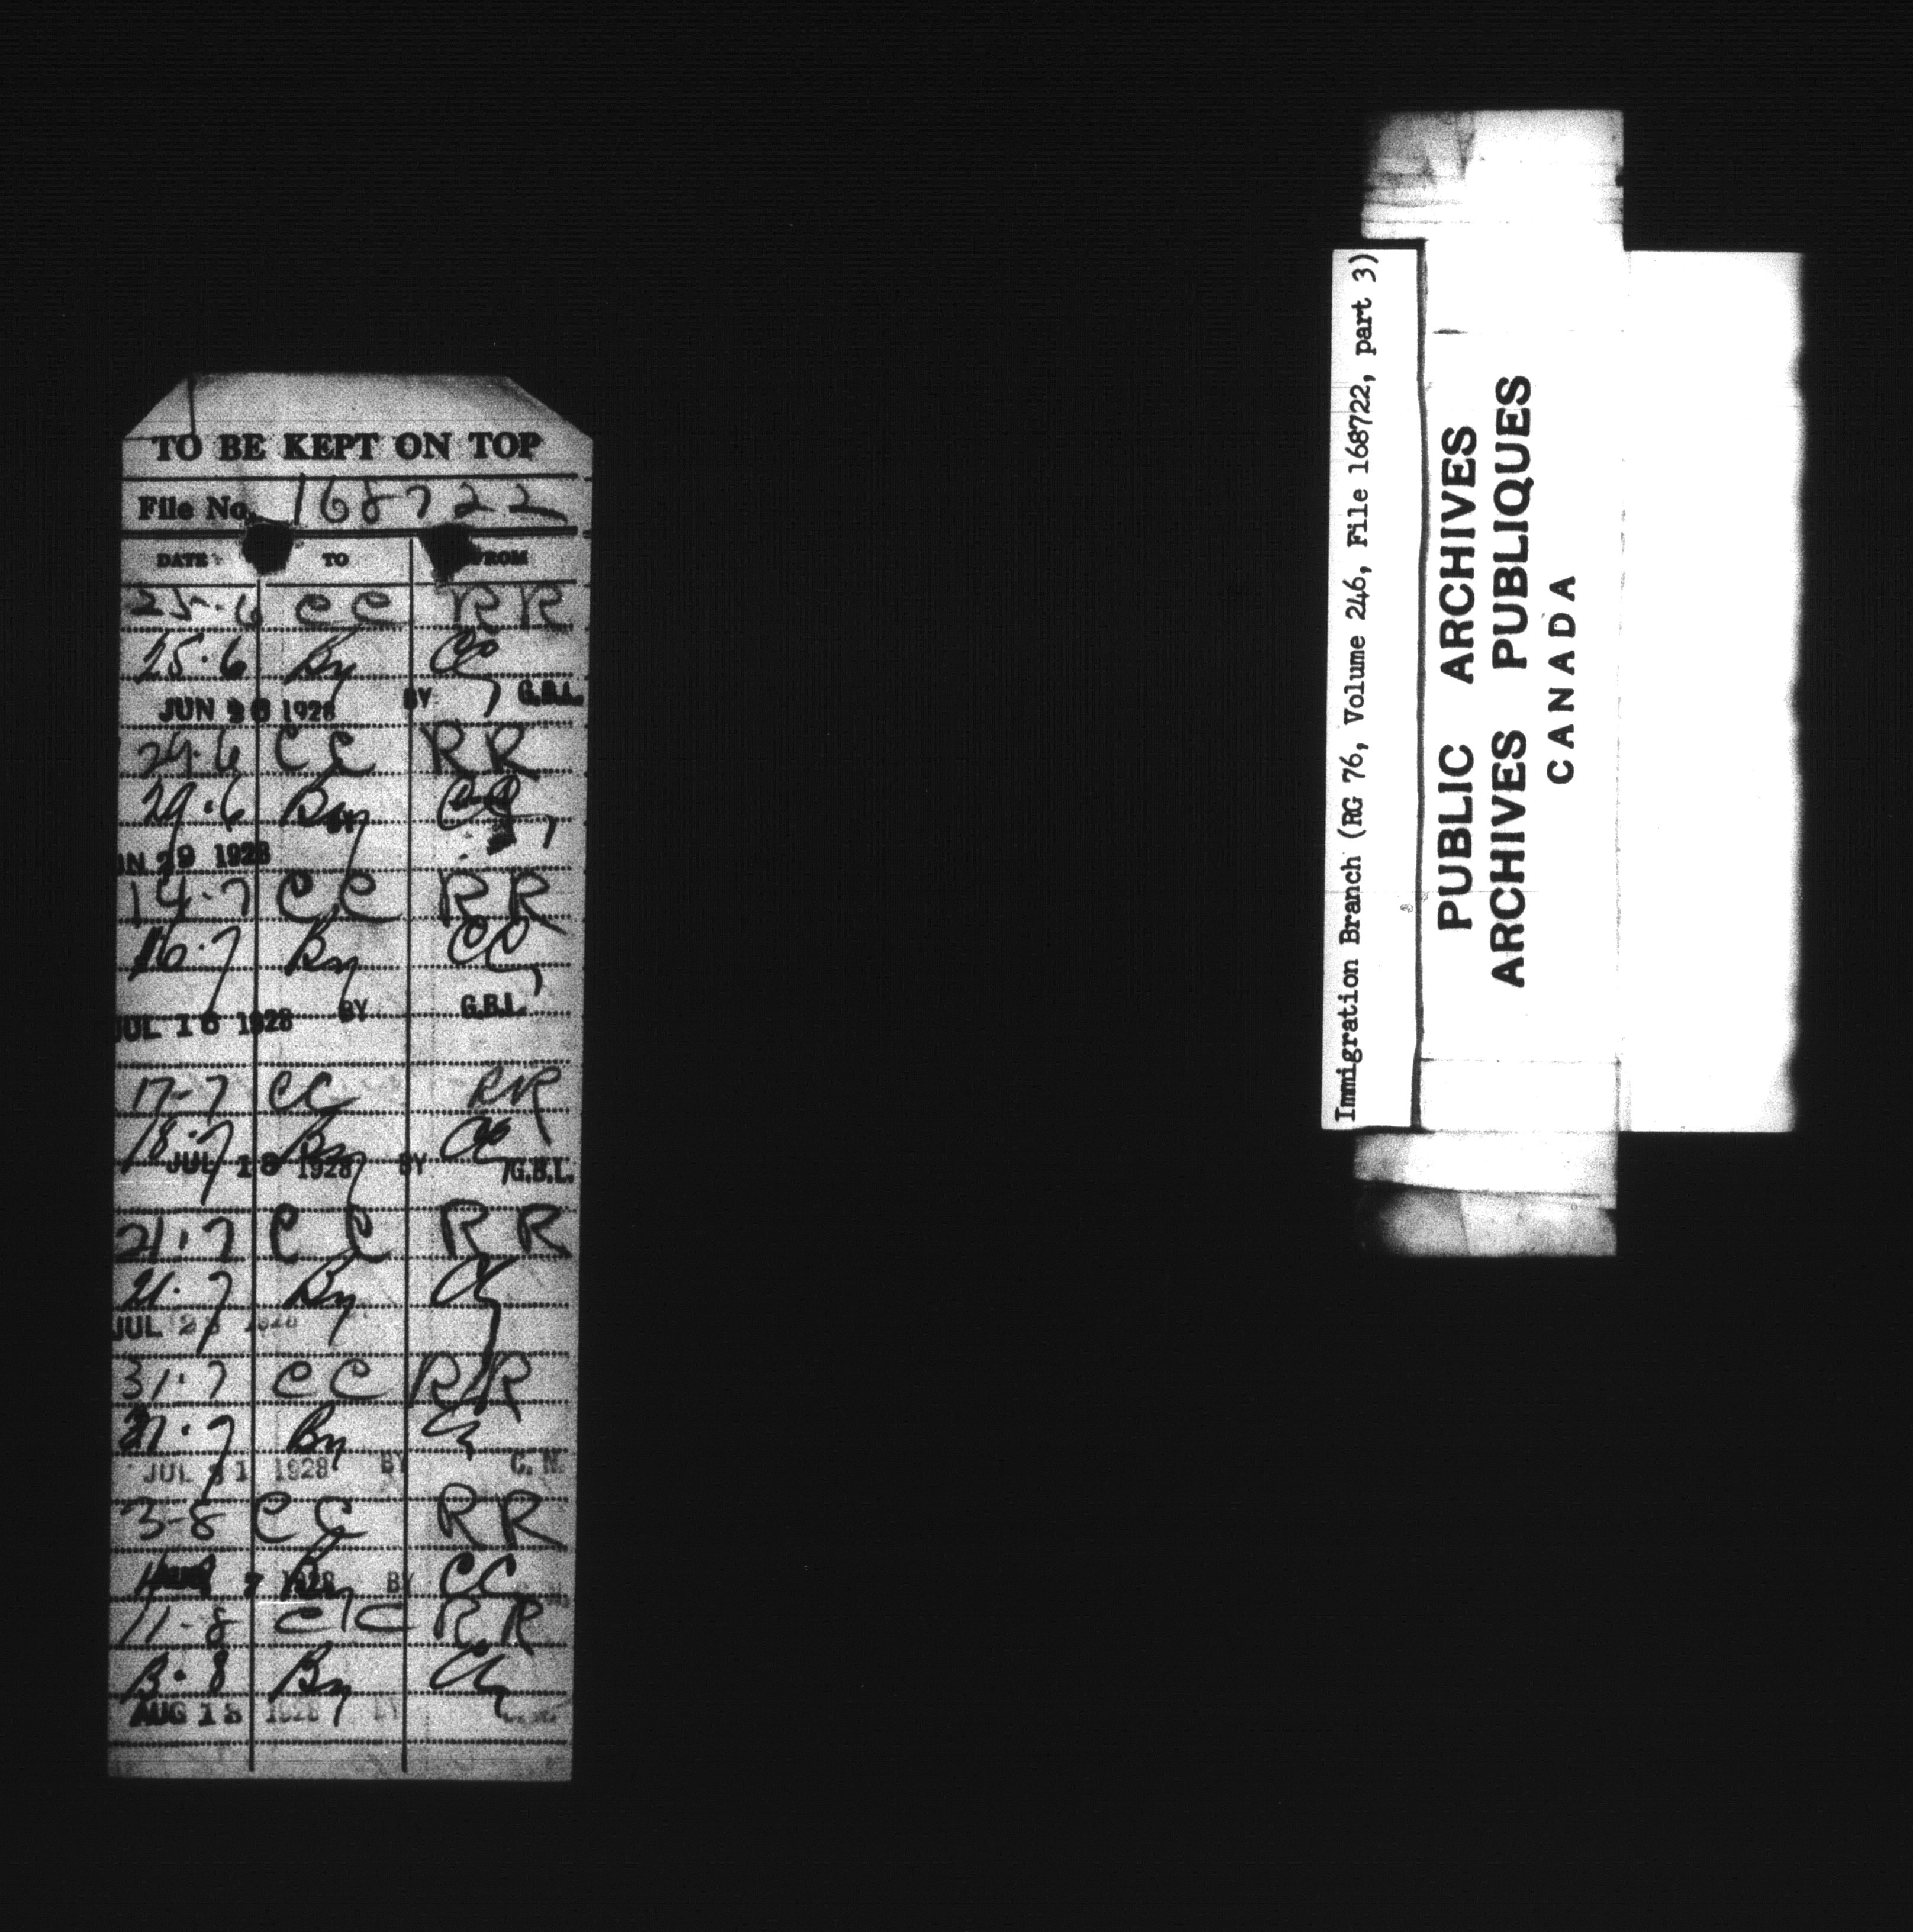 TO BE KEPT ON TOP
File No. 168722
DATE TO FROM
25.6 CC RR
25.6 By CC
JUN 26 1928 BY G.B.L.
29.6 CC RR
29.6 By CC
BY
UN 29 1928
14.7 CC RR
16.7 By CC
JUL 16 1928 BY G.B.L.
17-7 CC RR
18.7 By CC
JUL 18 1928 BY G.B.L.
21.7 CC RR
21.7 By CC
JUL 23 1928
31.7 CC RR
31.7 By CC
JUL 31 1928 BY C.N.
3-8 CC RR
7 1928 By BY CC
11-8 CC RR
13.8 By CC
AUG 13 1928 BY
Immigration Branch (RG 76, Volume 246, File 168722, part 3)
PUBLIC ARCHIVES
ARCHIVES PUBLIQUES
CANADA